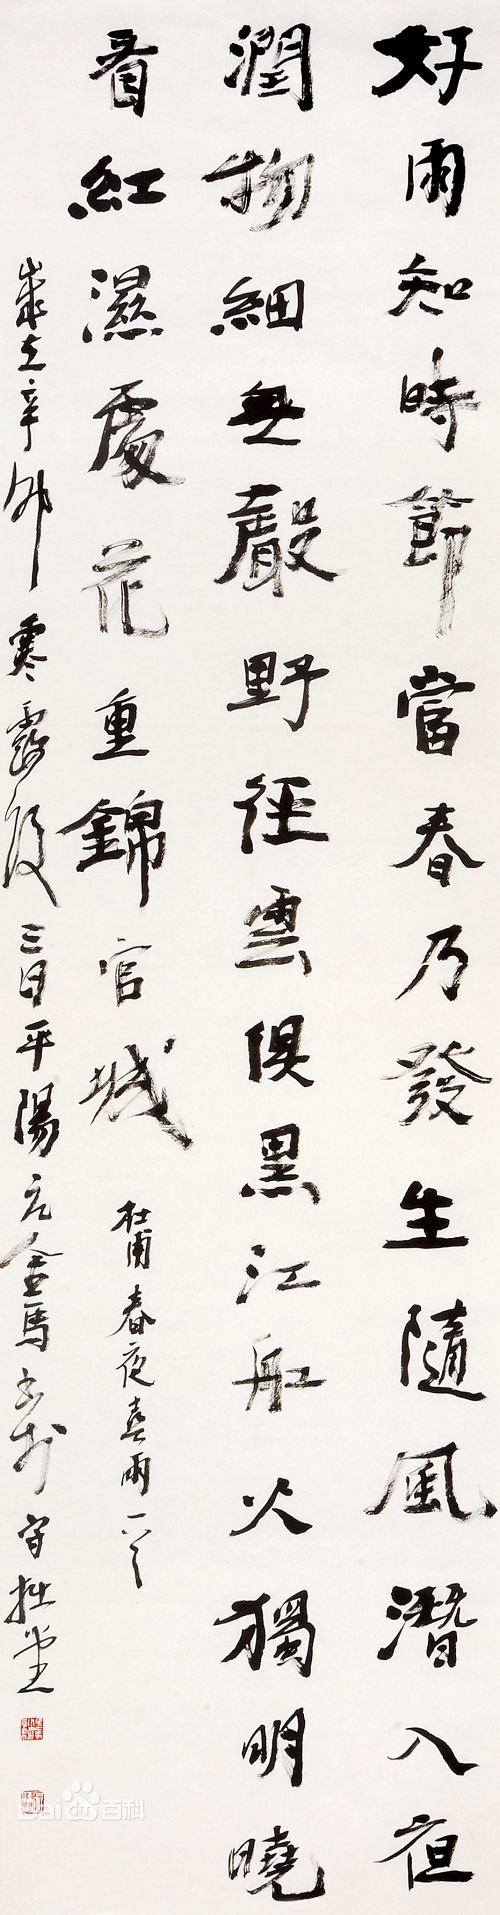 好雨知時節當春乃發生隨風潛入夜
潤物細無聲野徑雲俱黑江船火獨明曉
看紅濕處花重錦官城
杜甫春夜喜雨
歲在辛卯寒露後三日平陽金馬書於守拙堂
Bai百科